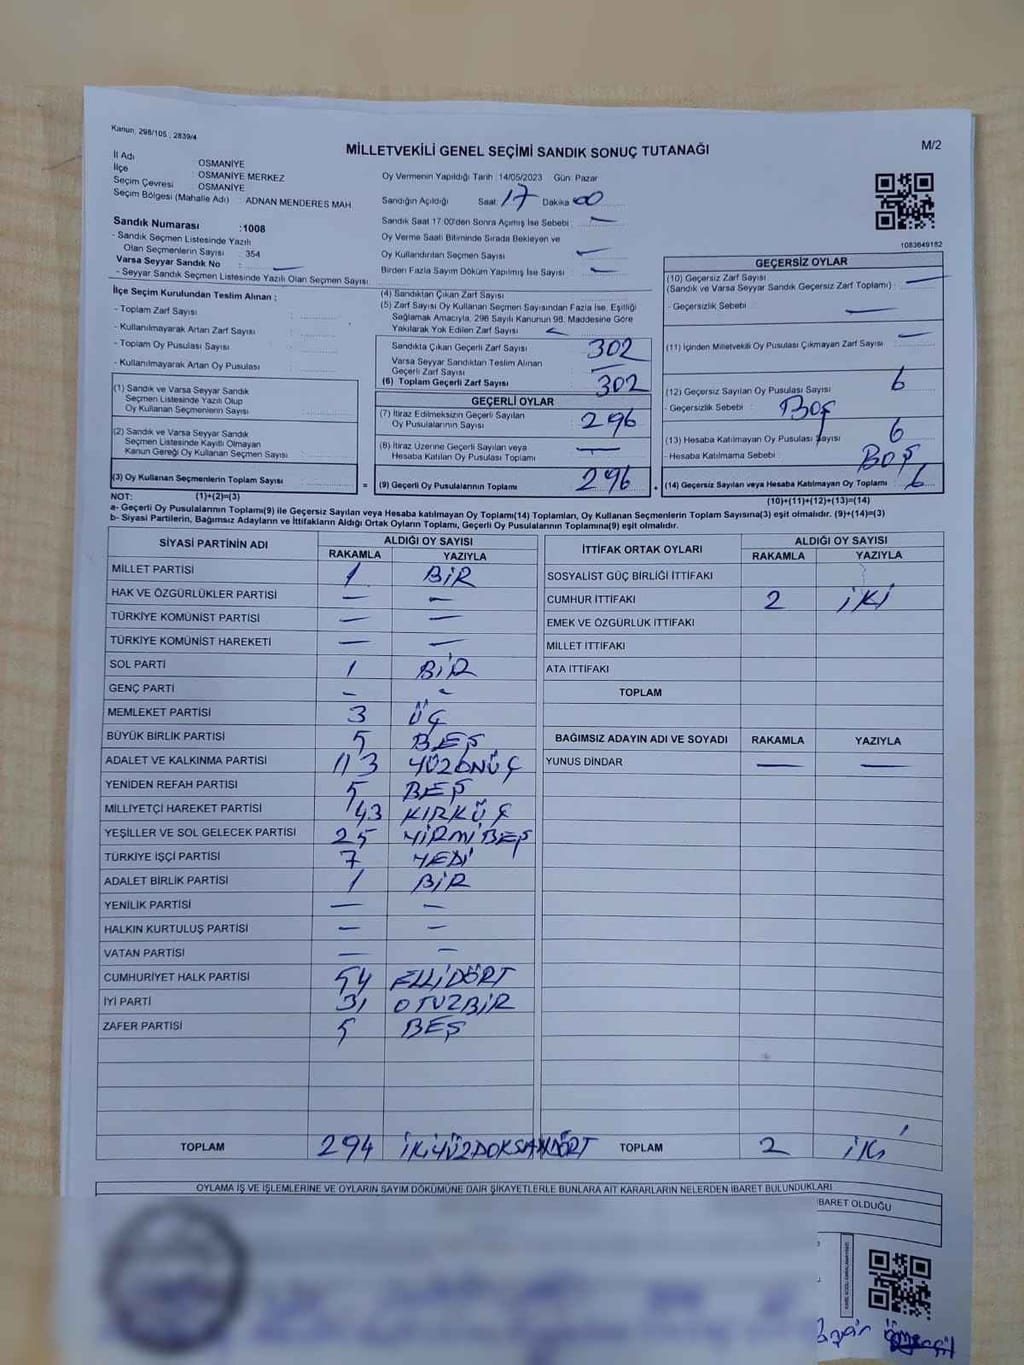 Kanun, 298/105 , 2839/4
M/2
MİLLETVEKİLİ GENEL SEÇİMİ SANDIK SONUÇ TUTANAĞI
İl Adı : OSMANİYE
İlçe : OSMANİYE MERKEZ
Seçim Çevresi : OSMANİYE
Seçim Bölgesi (Mahalle Adı) : ADNAN MENDERES MAH
Sandık Numarası :1008
- Sandık Seçmen Listesinde Yazılı
Olan Seçmenlerin Sayısı : 354
Varsa Seyyar Sandık No : —
- Seyyar Sandık Seçmen Listesinde Yazılı Olan Seçmen Sayısı
İlçe Seçim Kurulundan Teslim Alınan ;
- Toplam Zarf Sayısı :
- Kullanılmayarak Artan Zarf Sayısı :
- Toplam Oy Pusulası Sayısı :
- Kullanılmayarak Artan Oy Pusulası
(1) Sandık ve Varsa Seyyar Sandık
Seçmen Listesinde Yazılı Olup
Oy Kullanan Seçmenlerin Sayısı
(2) Sandık ve Varsa Seyyar Sandık
Seçmen Listesinde Kayıtlı Olmayan
Kanun Gereği Oy Kullanan Seçmen Sayısı
(3) Oy Kullanan Seçmenlerin Toplam Sayısı
Oy Vermenin Yapıldığı Tarih :14/05/2023 Gün: Pazar
Sandığın Açıldığı Saat: 17 Dakika 00
Sandık Saat 17:00'den Sonra Açılmış İse Sebebi : —
Oy Verme Saati Bitiminde Sırada Bekleyen ve
Oy Kullandırılan Seçmen Sayısı : —
Birden Fazla Sayım Döküm Yapılmış İse Sayısı : —
(4) Sandıktan Çıkan Zarf Sayısı
(5) Zarf Sayısı Oy Kullanan Seçmen Sayısından Fazla İse, Eşitliği
Sağlamak Amacıyla, 298 Sayılı Kanunun 98. Maddesine Göre
Yakılarak Yok Edilen Zarf Sayısı : —
Sandıkta Çıkan Geçerli Zarf Sayısı 302
Varsa Seyyar Sandıktan Teslim Alınan
Geçerli Zarf Sayısı —
(6) Toplam Geçerli Zarf Sayısı 302
GEÇERLİ OYLAR
(7) İtiraz Edilmeksizin Geçerli Sayılan
Oy Pusulalarının Sayısı 296
(8) İtiraz Üzerine Geçerli Sayılan veya
Hesaba Katılan Oy Pusulası Toplamı —
= (9) Geçerli Oy Pusulalarının Toplamı 296
1083649182
GEÇERSİZ OYLAR
(10) Geçersiz Zarf Sayısı
(Sandık ve Varsa Seyyar Sandık Geçersiz Zarf Toplamı) : —
- Geçersizlik Sebebi : —
(11) İçinden Milletvekili Oy Pusulası Çıkmayan Zarf Sayısı —
(12) Geçersiz Sayılan Oy Pusulası Sayısı 6
- Geçersizlik Sebebi : BOŞ
(13) Hesaba Katılmayan Oy Pusulası Sayısı 6
- Hesaba Katılmama Sebebi : BOŞ
(14) Geçersiz Sayılan veya Hesaba Katılmayan Oy Toplamı 6
NOT: (1)+(2)=(3)
(10)+(11)+(12)+(13)=(14)
a- Geçerli Oy Pusulalarının Toplamı(9) ile Geçersiz Sayılan veya Hesaba katılmayan Oy Toplamı(14) Toplamları, Oy Kullanan Seçmenlerin Toplam Sayısına(3) eşit olmalıdır. (9)+(14)=(3)
b- Siyasi Partilerin, Bağımsız Adayların ve İttifakların Aldığı Ortak Oyların Toplamı, Geçerli Oy Pusulalarının Toplamına(9) eşit olmalıdır.
SİYASİ PARTİNİN ADI ALDIĞI OY SAYISI
RAKAMLA YAZIYLA
MİLLET PARTİSİ 1 BİR
HAK VE ÖZGÜRLÜKLER PARTİSİ — —
TÜRKİYE KOMÜNİST PARTİSİ — —
TÜRKİYE KOMÜNİST HAREKETİ — —
SOL PARTİ 1 BİR
GENÇ PARTİ — —
MEMLEKET PARTİSİ 3 ÜÇ
BÜYÜK BİRLİK PARTİSİ 5 BEŞ
ADALET VE KALKINMA PARTİSİ 113 YÜZONÜÇ
YENİDEN REFAH PARTİSİ 5 BEŞ
MİLLİYETÇİ HAREKET PARTİSİ 43 KIRKÜÇ
YEŞİLLER VE SOL GELECEK PARTİSİ 25 YİRMİBEŞ
TÜRKİYE İŞÇİ PARTİSİ 7 YEDİ
ADALET BİRLİK PARTİSİ 1 BİR
YENİLİK PARTİSİ — —
HALKIN KURTULUŞ PARTİSİ — —
VATAN PARTİSİ — —
CUMHURİYET HALK PARTİSİ 54 ELLİDÖRT
İYİ PARTİ 31 OTUZBİR
ZAFER PARTİSİ 5 BEŞ
TOPLAM 294 İKİYÜZDOKSANDÖRT
İTTİFAK ORTAK OYLARI ALDIĞI OY SAYISI
RAKAMLA YAZIYLA
SOSYALİST GÜÇ BİRLİĞİ İTTİFAKI
CUMHUR İTTİFAKI 2 İKİ
EMEK VE ÖZGÜRLÜK İTTİFAKI
MİLLET İTTİFAKI
ATA İTTİFAKI
TOPLAM
BAĞIMSIZ ADAYIN ADI VE SOYADI RAKAMLA YAZIYLA
YUNUS DİNDAR — —
TOPLAM 2 İKİ
OYLAMA İŞ VE İŞLEMLERİNE VE OYLARIN SAYIM DÖKÜMÜNE DAİR ŞİKAYETLERLE BUNLARA AİT KARARLARIN NELERDEN İBARET BULUNDUKLARI
İBARET OLDUĞU